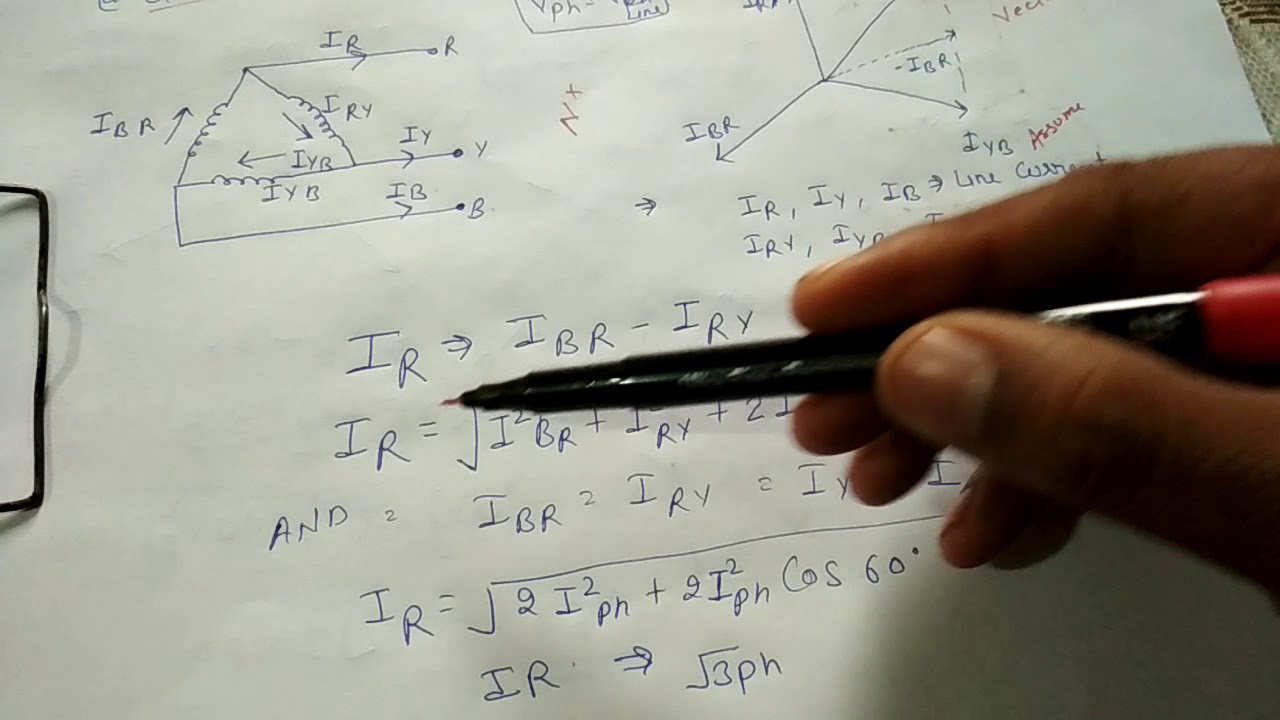 Vph = V Line
IR
R
IRY
IBR
IY
Y
IYB
IYB
IB
B
-IBR
IBR
IYB Assume
⇒ IR, IY, IB ⇒ Line Current
IRY,
IR ⇒ IBR - IRY
IR = √I²BR + IRY + 2
AND = IBR = IRY = IY
IR = √2 I²ph + 2I²ph Cos 60°
IR ⇒ √3ph